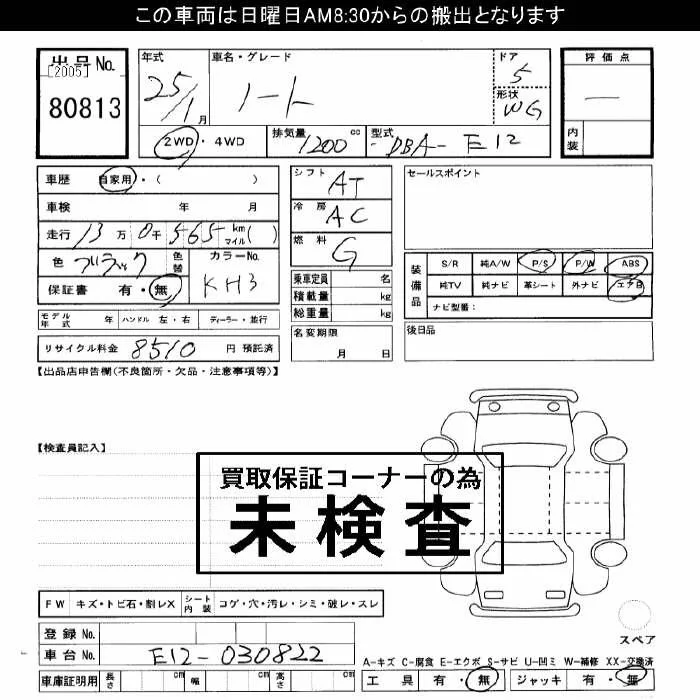 この車両は日曜日AM8:30からの搬出となります
出品No.
[2005]
80813
年式
25/1月
車名・グレード
ノート
ドア
5
形状
WG
2WD・4WD
排気量 1200 cc
型式 -DBA- E12
評価点
―
内装
車歴 自家用・( )
車検 年 月
走行 13万 0千 565 km マイル( )
色 ブラック 色替 カラーNo. KH3
保証書 有・無
シフト AT
冷房 AC
燃料 G
乗車定員 名
積載量 kg
総重量 kg
セールスポイント
装備品
S/R 純A/W P/S P/W ABS
純TV 純ナビ 革シート 外ナビ エアB
ナビ型番:
モデル年式 年 ハンドル 左・右 ディーラー・並行
名変期限 月 日
後日品
リサイクル料金 8510 円 預託済
【出品店申告欄(不良箇所・欠品・注意事項等)】
【検査員記入】
買取保証コーナーの為
未検査
FW キズ・トビ石・割レX シート内装 コゲ・穴・汚レ・シミ・破レ・スレ
登録No.
車台No. E12-030822
車庫証明用 長さ cm 幅 cm 高さ cm
スペア
A-キズ C-腐食 E-エクボ S-サビ U-凹ミ W-補修 XX-交換済
工具 有・無 ジャッキ 有・無